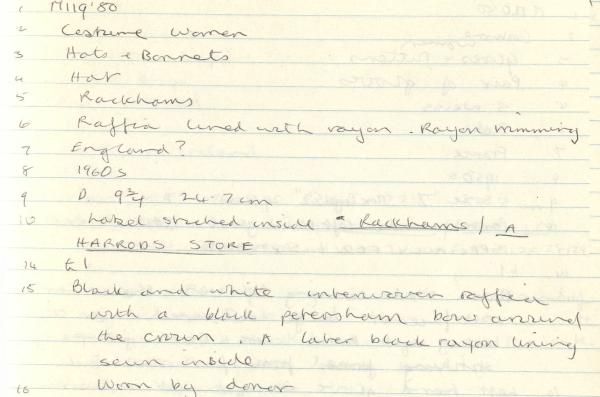 1 M119'80
2 Costume Women
3 Hats + Bonnets
4 Hat
5 Rackhams
6 Raffia lined with rayon. Rayon trimming
7 England?
8 1960s
9 D. 9¾ 24.7cm
10 Label stitched inside "Rackhams / A
HARRODS STORE
14 £1
15 Black and white interwoven raffia
with a black petersham bow around
the crown. A later black rayon lining
sewn inside
16 Worn by donor